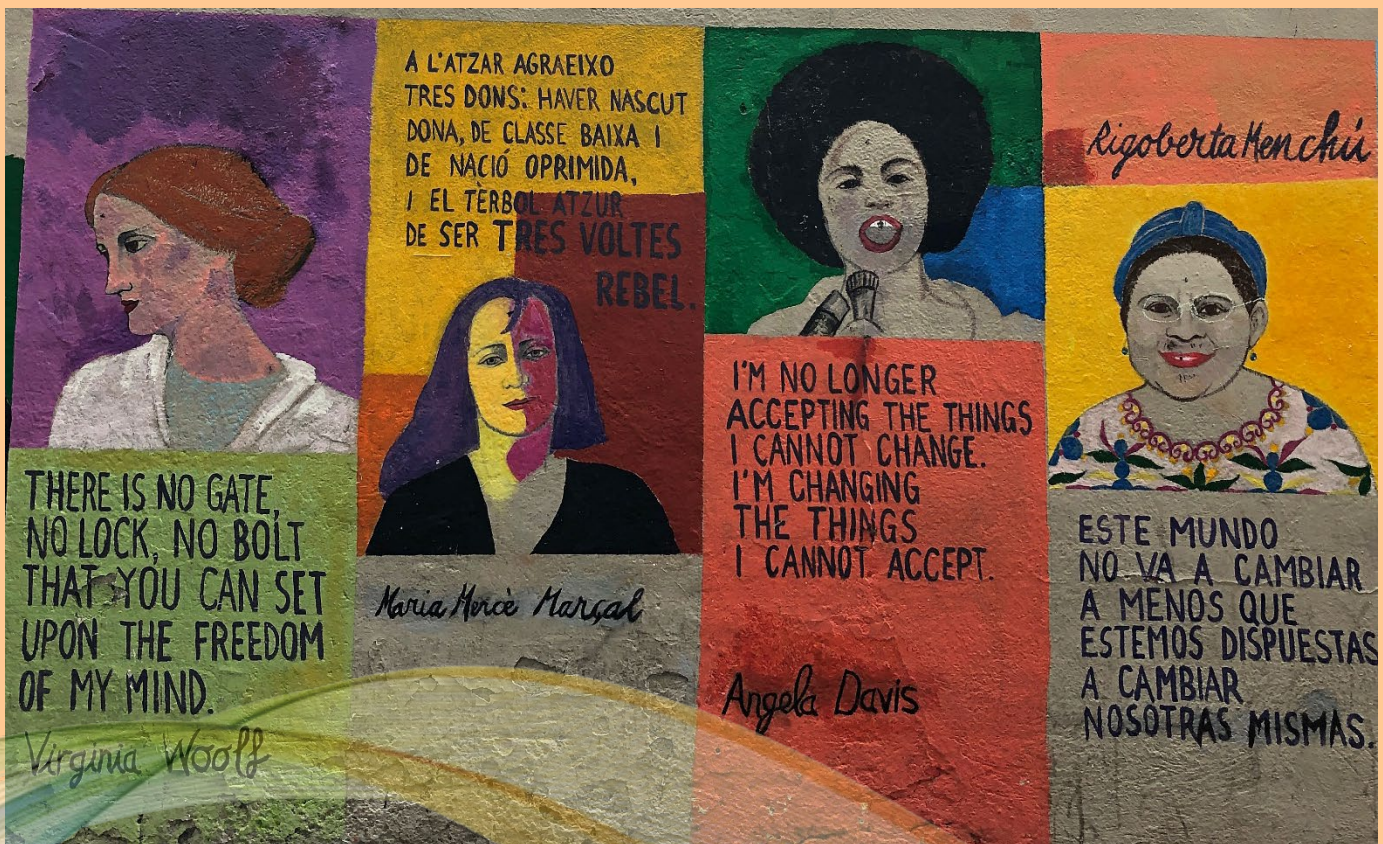 THERE IS NO GATE,
NO LOCK, NO BOLT
THAT YOU CAN SET
UPON THE FREEDOM
OF MY MIND.
Virginia Woolf
A L'ATZAR AGRAEIXO
TRES DONS: HAVER NASCUT
DONA, DE CLASSE BAIXA I
DE NACIÓ OPRIMIDA,
I EL TÈRBOL ATZUR
DE SER TRES VOLTES
REBEL.
Maria Mercè Marçal
I'M NO LONGER
ACCEPTING THE THINGS
I CANNOT CHANGE.
I'M CHANGING
THE THINGS
I CANNOT ACCEPT.
Angela Davis
Rigoberta Menchú
ESTE MUNDO
NO VA A CAMBIAR
A MENOS QUE
ESTEMOS DISPUESTAS
A CAMBIAR
NOSOTRAS MISMAS.